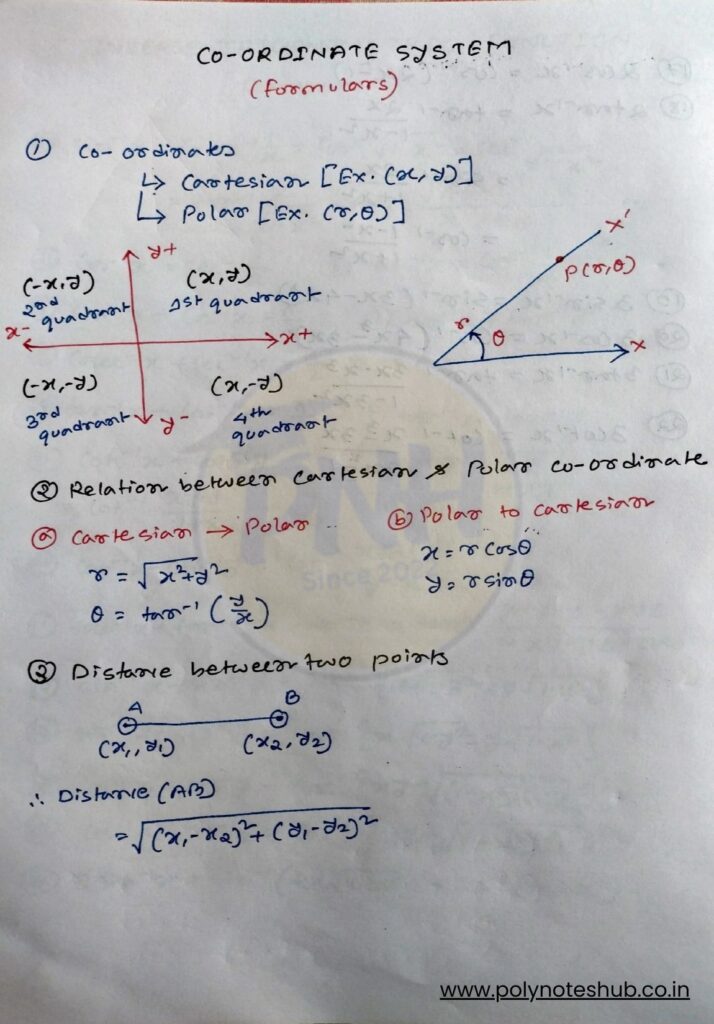 CO-ORDINATE SYSTEM
(formulars)
① Co-ordinates
↳ Cartesian [Ex. (x, y)]
↳ Polar [Ex. (r, θ)]
y+
(-x, y)
2nd quadrant
(x, y)
1st quadrant
x-
x+
(-x, -y)
3rd quadrant
y-
(x, -y)
4th quadrant
x'
P(r, θ)
r
θ
x
② Relation between Cartesian & Polar co-ordinate
ⓐ Cartesian → Polar
r = √x²+y²
θ = tan⁻¹ (y/x)
ⓑ Polar to cartesian
x = r cosθ
y = r sinθ
PNH
Since 202
③ Distane between two points
A
B
(x₁, y₁)
(x₂, y₂)
∴ Distane (AB)
= √(x₁-x₂)²+(y₁-y₂)²
www.polynoteshub.co.in